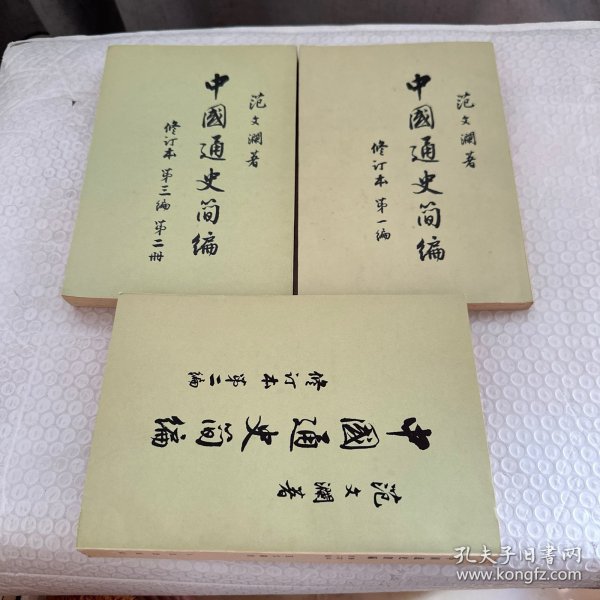 范文瀾著
中國通史简编
修订本 第三编 第二册
范文瀾著
中國通史简编
修订本 第一编
修订本 第二编
中國通史简编
范文瀾著
孔夫子旧书网
www.kongfz.com